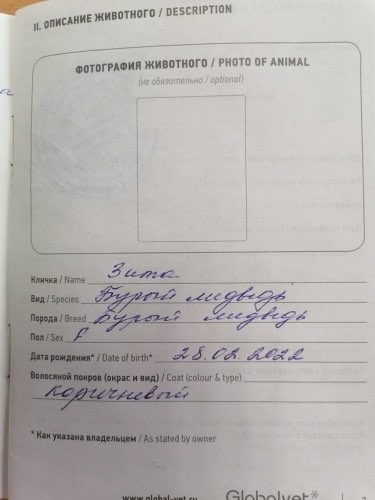 II. ОПИСАНИЕ ЖИВОТНОГО / DESCRIPTION
ФОТОГРАФИЯ ЖИВОТНОГО / PHOTO OF ANIMAL
(не обязательно / optional)
Кличка / Name Зима
Вид / Species Бурый медведь
Порода / Breed Бурый медведь
Пол / Sex F
Дата рождения* / Date of birth* 28.02.2022
Волосяной покров (окрас и вид) / Coat (colour & type)
коричневый
* Как указана владельцем / As stated by owner
www.global-vet.ru Globalvet*